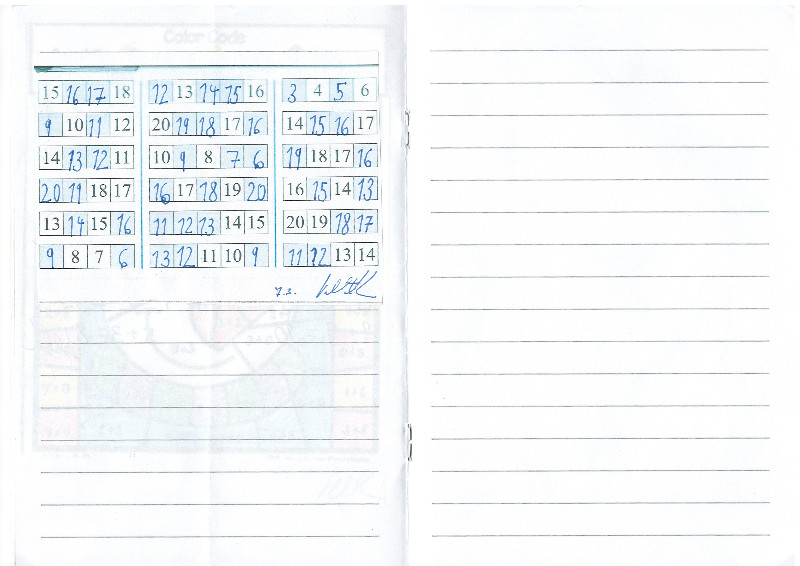 Color Code
15 16 17 18 12 13 14 15 16 3 4 5 6
9 10 11 12 20 19 18 17 16 14 15 16 17
14 13 12 11 10 9 8 7 6 19 18 17 16
20 19 18 17 16 17 18 19 20 16 15 14 13
13 14 15 16 11 12 13 14 15 20 19 18 17
9 8 7 6 13 12 11 10 9 11 12 13 14
7.2.